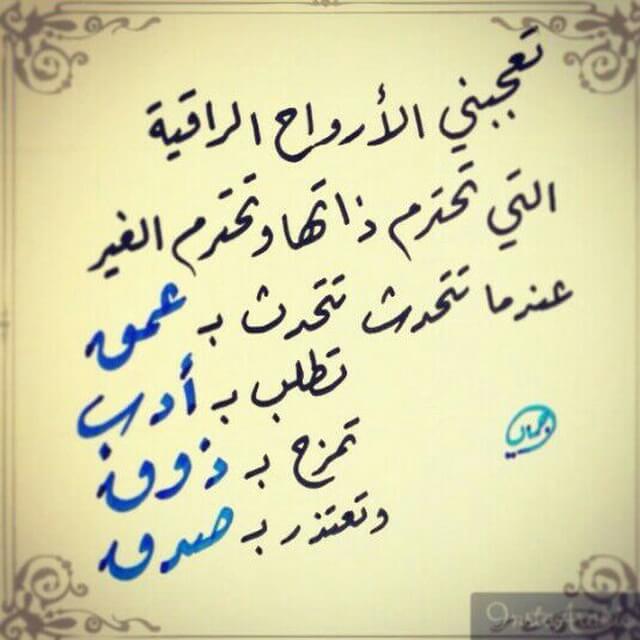 تعجبني الأرواح الراقية
التي تحترم ذاتها وتحترم الغير
عندما تتحدث تتحدث بـ عمق
تطلب بـ أدب
تمزح بـ ذوق
وتعتذر بـ صدق